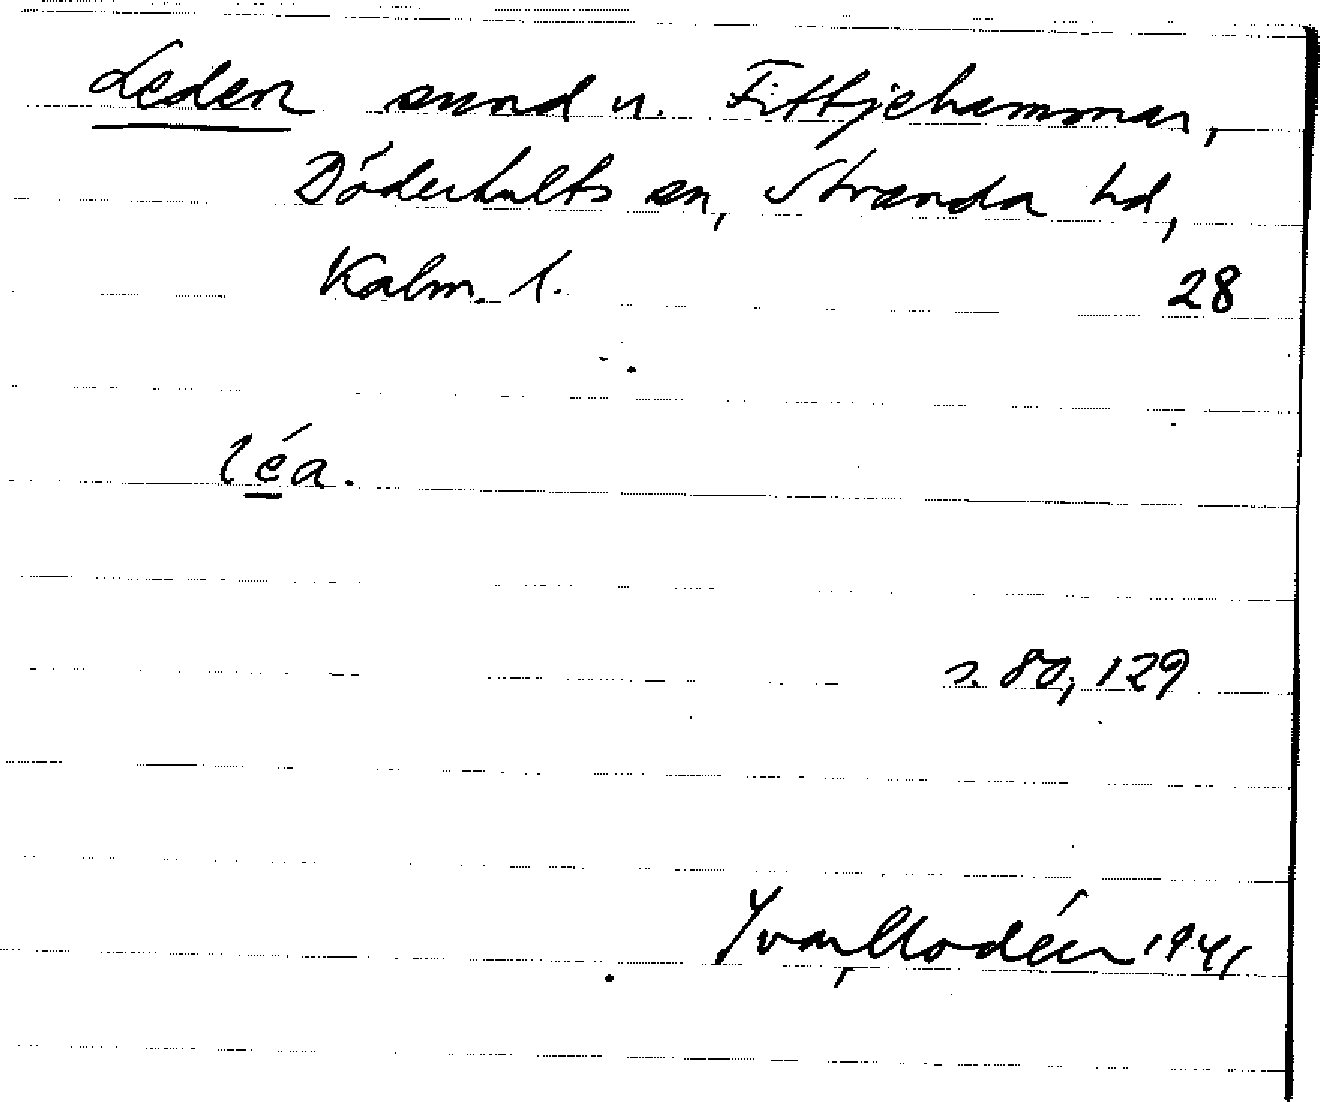 Leden sund n. Fittjehammar,
Döderhults sn, Stranda hd,
Kalm. l.
28
léa.
s. 80, 129
Yvar Modéer 1941